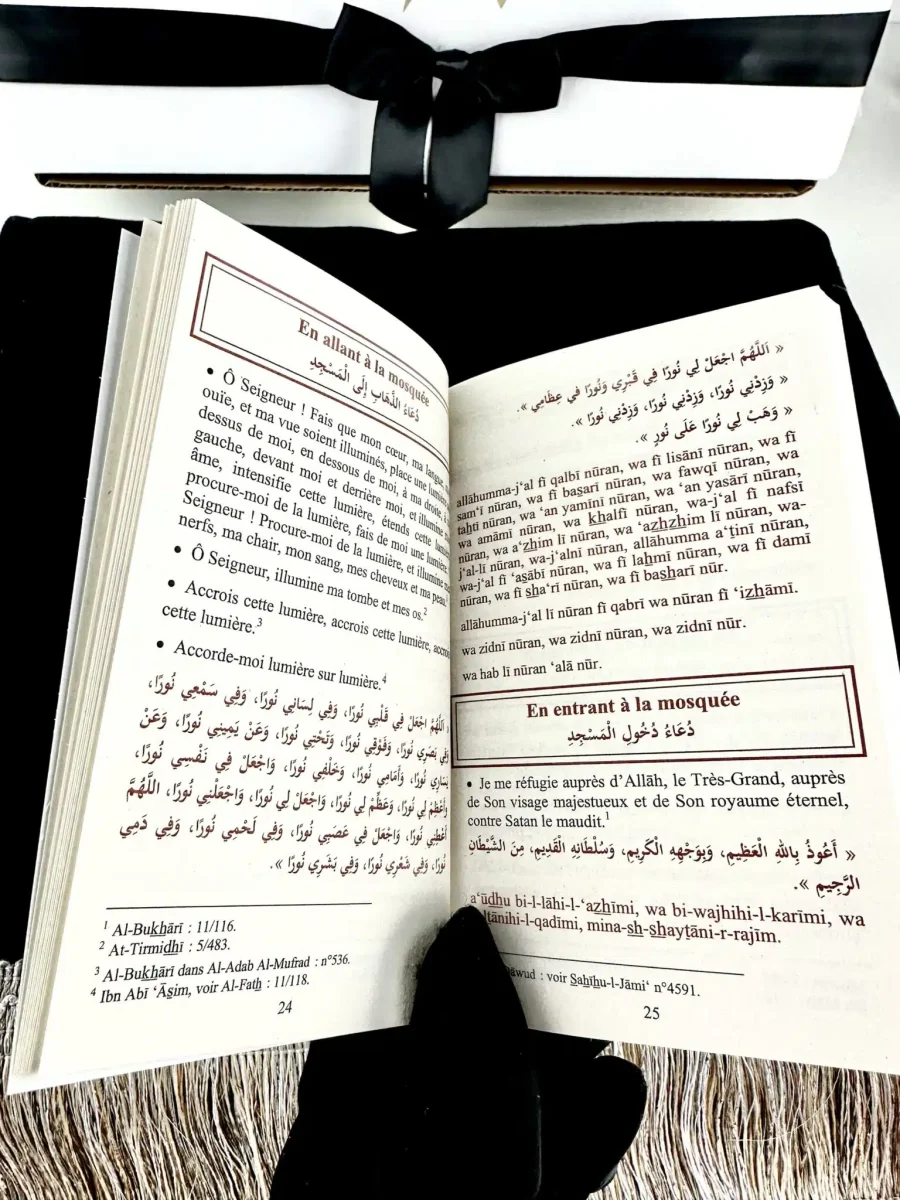 En allant à la mosquée
دُعَاءُ الذَّهَابِ إِلَى الْمَسْجِدِ
• Ô Seigneur ! Fais que mon cœur, ma langue,
ouïe, et ma vue soient illuminés, place une lumière
dessus de moi, en dessous de moi, à ma droite, à
gauche, devant moi et derrière moi, et illumine
âme, intensifie cette lumière, étends cette lumière
procure-moi de la lumière, fais de moi une lumière
Seigneur ! Procure-moi de la lumière, et illumine
nerfs, ma chair, mon sang, mes cheveux et ma peau.¹
• Ô Seigneur, illumine ma tombe et mes os.²
• Accrois cette lumière, accrois cette lumière, accrois
cette lumière.³
• Accorde-moi lumière sur lumière.⁴
اللَّهُمَّ اجْعَلْ فِي قَلْبِي نُورًا، وَفِي لِسَانِي نُورًا، وَفِي سَمْعِي نُورًا،
وَفِي بَصَرِي نُورًا، وَفَوْقِي نُورًا، وَتَحْتِي نُورًا، وَعَنْ يَمِينِي نُورًا، وَعَنْ
يَسَارِي نُورًا، وَأَمَامِي نُورًا، وَخَلْفِي نُورًا، وَاجْعَلْ فِي نَفْسِي نُورًا،
وَأَعْظِمْ لِي نُورًا، وَعَظِّمْ لِي نُورًا، وَاجْعَلْ لِي نُورًا، وَاجْعَلْنِي نُورًا، اللَّهُمَّ
أَعْطِنِي نُورًا، وَاجْعَلْ فِي عَصَبِي نُورًا، وَفِي لَحْمِي نُورًا، وَفِي دَمِي
نُورًا، وَفِي شَعْرِي نُورًا، وَفِي بَشَرِي نُورًا ».
¹ Al-Bukhārī : 11/116.
² At-Tirmidhī : 5/483.
³ Al-Bukhārī dans Al-Adab Al-Mufrad : n°536.
⁴ Ibn Abī ‘Āṣim, voir Al-Fatḥ : 11/118.
24
« اَللَّهُمَّ اجْعَلْ لِي نُورًا فِي قَبْرِي وَنُورًا فِي عِظَامِي ».
« وَزِدْنِي نُورًا، وَزِدْنِي نُورًا، وَزِدْنِي نُورًا ».
« وَهَبْ لِي نُورًا عَلَى نُورٍ ».
allāhumma-j‘al fī qalbī nūran, wa fī lisānī nūran, wa fī
sam‘ī nūran, wa fī baṣarī nūran, wa fawqī nūran, wa
taḥtī nūran, wa ‘an yamīnī nūran, wa ‘an yasārī nūran,
wa amāmī nūran, wa khalfī nūran, wa-j‘al fī nafsī
nūran, wa a‘zhim lī nūran, wa ‘azhzhim lī nūran, wa-
j‘al-lī nūran, wa-j‘alnī nūran, allāhumma a‘ṭinī nūran,
wa-j‘al fī ‘aṣābī nūran, wa fī laḥmī nūran, wa fī damī
nūran, wa fī sha‘rī nūran, wa fī basharī nūr.
allāhumma-j‘al lī nūran fī qabrī wa nūran fī ‘izhāmī.
wa zidnī nūran, wa zidnī nūran, wa zidnī nūr.
wa hab lī nūran ‘alā nūr.
En entrant à la mosquée
دُعَاءُ دُخُولِ الْمَسْجِدِ
• Je me réfugie auprès d’Allāh, le Très-Grand, auprès
de Son visage majestueux et de Son royaume éternel,
contre Satan le maudit.¹
« أَعُوذُ بِاللهِ الْعَظِيمِ، وَبِوَجْهِهِ الْكَرِيمِ، وَسُلْطَانِهِ الْقَدِيمِ، مِنَ الشَّيْطَانِ
الرَّجِيمِ ».
a‘ūdhu bi-l-lāhi-l-‘azhīmi, wa bi-wajhihi-l-karīmi, wa
ṭānihi-l-qadīmi, mina-sh-shayṭāni-r-rajīm.
āwud : voir Ṣaḥīḥu-l-Jāmi‘ n°4591.
25